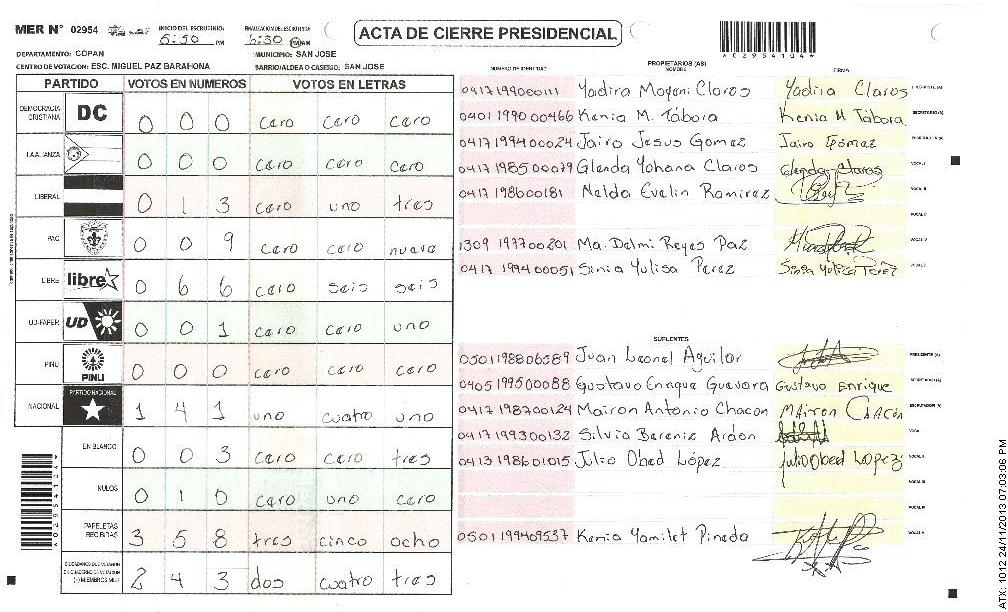 MER N° 02954 INICIO DEL ESCRUTINIO: 5:50 PM FINALIZACION DEL ESCRUTINIO: 6:30 PM
ACTA DE CIERRE PRESIDENCIAL
*02954104*
DEPARTAMENTO: COPAN MUNICIPIO: SAN JOSE
CENTRO DE VOTACION: ESC. MIGUEL PAZ BARAHONA BARRIO/ALDEA O CASERIO: SAN JOSE
PARTIDO VOTOS EN NUMEROS VOTOS EN LETRAS
DEMOCRACIA CRISTIANA DC 0 0 0 cero cero cero
LA ALIANZA 0 0 0 cero cero cero
LIBERAL 0 1 3 cero uno tres
PAC 0 0 9 cero cero nueve
LIBRE libre 0 6 6 cero seis seis
UD-FAPER UD 0 0 1 cero cero uno
PINU PINU 0 0 0 cero cero cero
NACIONAL PARTIDO NACIONAL 1 4 1 uno cuatro uno
EN BLANCO 0 0 3 cero cero tres
NULOS 0 1 0 cero uno cero
PAPELETAS RECIBIDAS 3 5 8 tres cinco ocho
CIUDADANOS QUE VOTARON EN CUADERNO DE VOTACION (+) MIEMBROS MER 2 4 3 dos cuatro tres
*02954104*
PROPIETARIOS (AS)
NUMERO DE IDENTIDAD NOMBRE FIRMA
0417199000111 Yadira Mayeni Claros Yadira Claros PRESIDENTE (A)
0401199000466 Kenia M. Tábora Kenia M Tábora SECRETARIO (A)
0417199400024 Jairo Jesus Gomez Jairo Gómez ESCRUTADOR (A)
0417198500079 Glenda Yohana Claros Glenda Claros VOCAL I
0417198600181 Nelda Evelin Ramirez VOCAL II
VOCAL III
1309197700201 Ma. Delmi Reyes Paz VOCAL IV
0417199400051 Sinia Yulisa Perez Sinia Yulisa Perez VOCAL V
SUPLENTES
0501198806589 Juan Leonel Aguilar PRESIDENTE (A)
0405199500088 Gustavo Enrique Guevara Gustavo Enrique SECRETARIO (A)
0417198700124 Mairon Antonio Chacon Mairon Chacon ESCRUTADOR (A)
0417199300132 Silvia Bereniz Ardon VOCAL I
0413198601015 Julio Obed López Julio Obed Lopez VOCAL II
VOCAL III
VOCAL IV
0501199409537 Kenia Yamilet Pineda VOCAL V
ATX: 1012 24/11/2013 07:03:06 PM